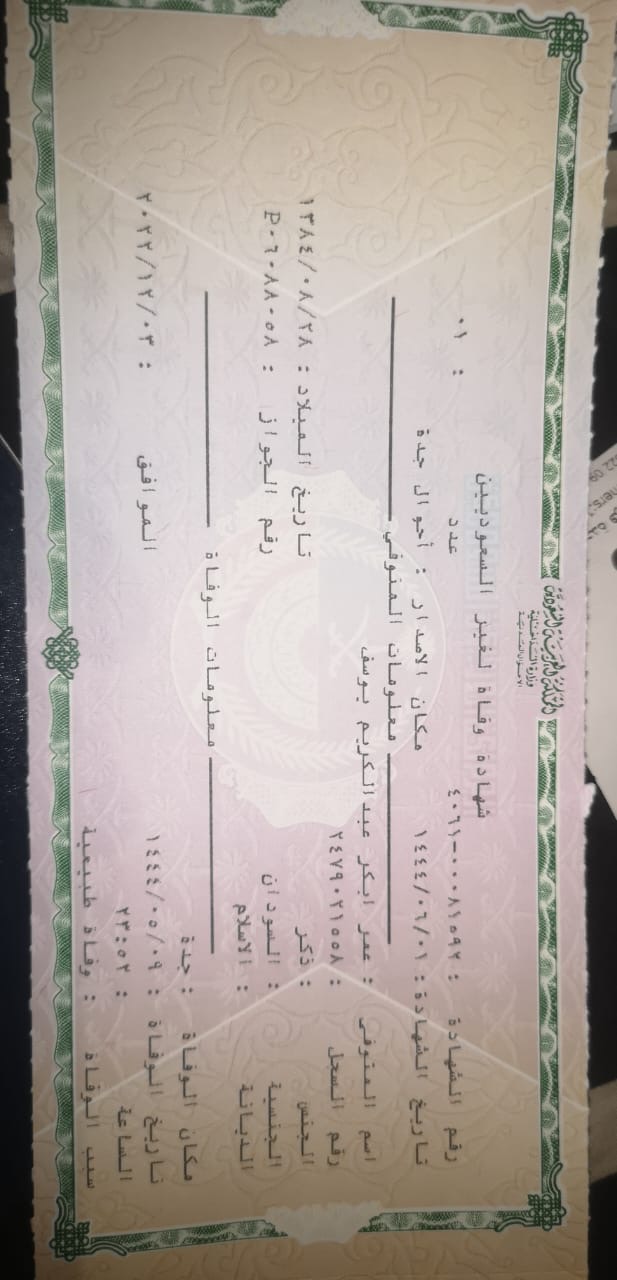 المملكة العربية السعودية
وزارة الداخلية
الأحوال المدنية
شهادة وفاة لغير السعوديين
رقم الشهادة : ٤٠٦١-٠٠٠٨١٥٩٢ عدد : ٠١
تاريخ الشهادة : ١٤٤٤/٠٦/٠١ مكان الاصدار : أحوال جدة
معلومات المتوفي
اسم المتوفى : عمر ابكر عبدالكريم يوسف
رقم السجل : ٢٤٧٩٠٢١٥٥٨
الجنس : ذكر تاريخ الميلاد : ١٣٨٤/٠٨/٢٨
الجنسية : السودان رقم الجواز : P٠٦٠٨٨٠٥٨
الديانة : الاسلام
معلومات الوفاة
مكان الوفاة : جدة
تاريخ الوفاة : ١٤٤٤/٠٥/٠٩ الموافق : ٢٠٢٢/١٢/٠٣
الساعة : ٢٣:٥٢
سبب الوفاة : وفاة طبيعية